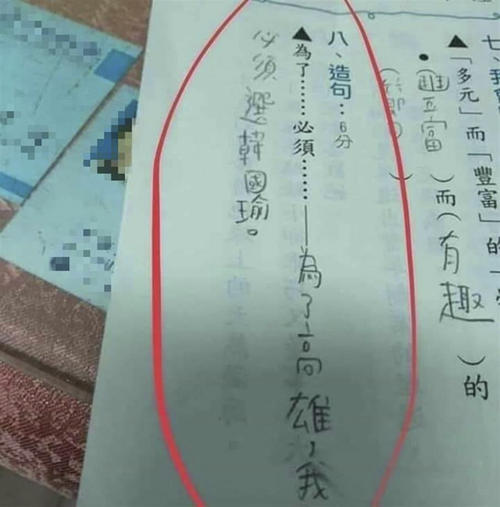 七、我
▲「多元」而「豐富」的
• (豐富)而(有趣)的
八、造句：6分
▲為了……必須……——為了高雄，我
必須選韓國瑜。